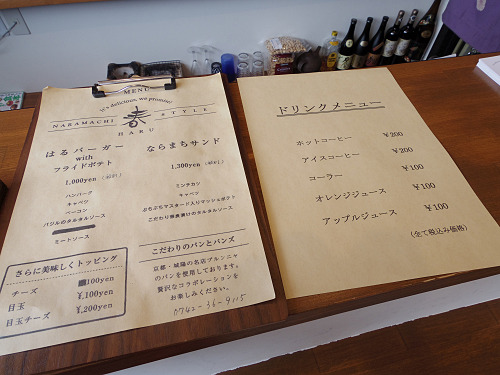 MENU
It's delicious, we promise!
NARAMACHI STYLE
春
HARU
はるバーガー
with
フライドポテト
1,000yen
ハンバーグ
キャベツ
ベーコン
バジルのタルタルソース
ミートソース
ならまちサンド
1,300yen
ミンチカツ
キャベツ
ぷちぷちマスタード入りマッシュポテト
こだわり奈良漬けのタルタルソース
さらに美味しくトッピング
チーズ 100yen
目玉 ¥,100yen
目玉チーズ ¥,200yen
こだわりのパンとバンズ
京都・城陽の名店ブルンニャ
のパンを使用しております。
贅沢なコラボレーションを
お楽しみください。
0742-36-9115
ドリンクメニュー
ホットコーヒー ¥200
アイスコーヒー ¥200
コーラー ¥100
オレンジジュース ¥100
アップルジュース ¥100
(全て税込み価格)